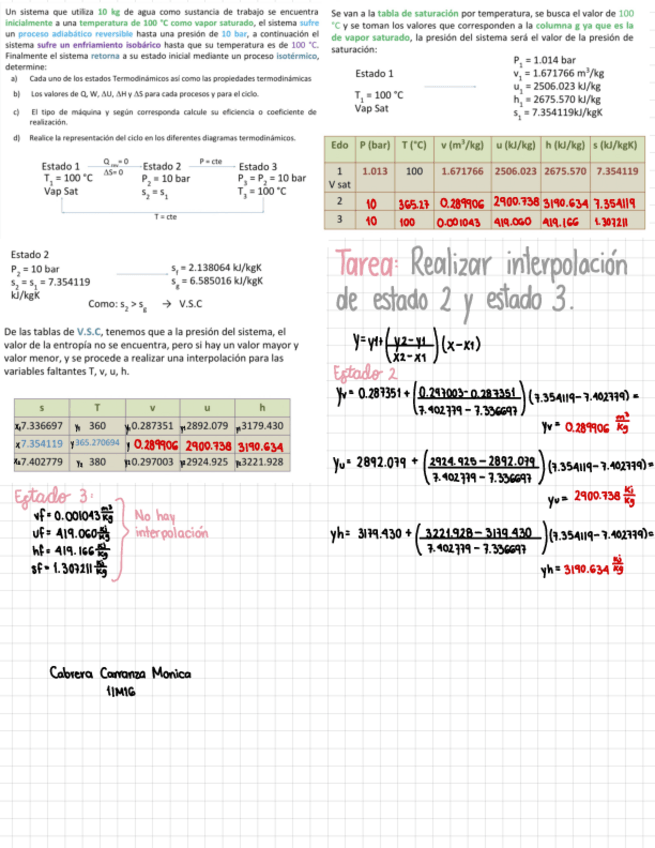 Un sistema que utiliza 10 kg de agua como sustancia de trabajo se encuentra
inicialmente a una temperatura de 100 °C como vapor saturado, el sistema sufre
un proceso adiabático reversible hasta una presión de 10 bar, a continuación el
sistema sufre un enfriamiento isobárico hasta que su temperatura es de 100 °C.
Finalmente el sistema retorna a su estado inicial mediante un proceso isotérmico,
determine:
a) Cada uno de los estados Termodinámicos así como las propiedades termodinámicas
b) Los valores de Q, W, ΔU, ΔH y ΔS para cada procesos y para el ciclo.
c) El tipo de máquina y según corresponda calcule su eficiencia o coeficiente de
realización.
d) Realice la representación del ciclo en los diferentes diagramas termodinámicos.
Estado 1 Q = 0 Estado 2 P = cte Estado 3
T₁ = 100 °C ΔS= 0 P₂ = 10 bar P₃ = P₂ = 10 bar
Vap Sat s₂ = s₁ T₃ = 100 °C
T = cte
Estado 2
P₂ = 10 bar s_f = 2.138064 kJ/kgK
s₂ = s₁ = 7.354119 s_g = 6.585016 kJ/kgK
kJ/kgK
Como: s₂ > s_g → V.S.C
De las tablas de V.S.C, tenemos que a la presión del sistema, el
valor de la entropía no se encuentra, pero si hay un valor mayor y
valor menor, y se procede a realizar una interpolación para las
variables faltantes T, v, u, h.
s T v u h
x₁7.336697 y₁ 360 y₁0.287351 y₁2892.079 y₁3179.430
x7.354119 y365.270694 y 0.289906 2900.738 3190.634
x₂7.402779 y₂ 380 y₂0.297003 y₂2924.925 y₂3221.928
Estado 3:
vf = 0.001043 m³/kg
uf = 419.060 kJ/kg
hf = 419.166 kJ/kg
sf = 1.307211 kJ/kg
No hay
interpolación
Cabrera Carranza Monica
1IM16
Se van a la tabla de saturación por temperatura, se busca el valor de 100
°C y se toman los valores que corresponden a la columna g ya que es la
de vapor saturado, la presión del sistema será el valor de la presión de
saturación:
Estado 1
T₁ = 100 °C
Vap Sat
P₁ = 1.014 bar
v₁ = 1.671766 m³/kg
u₁ = 2506.023 kJ/kg
h₁ = 2675.570 kJ/kg
s₁ = 7.354119kJ/kgK
Edo P (bar) T (°C) v (m³/kg) u (kJ/kg) h (kJ/kg) s (kJ/kgK)
1 1.013 100 1.671766 2506.023 2675.570 7.354119
V sat
2 10 365.27 0.289906 2900.738 3190.634 7.354119
3 10 100 0.001043 419.060 419.166 1.307211
Tarea: Realizar interpolación
de estado 2 y estado 3.
y=y1+(y2-y1/x2-x1)(x-x1)
Estado 2
yv= 0.287351 + (0.297003-0.287351/7.402779-7.336697)(7.354119-7.402779) =
yv= 0.289906 m³/kg
yu= 2892.079 + (2924.925-2892.079/7.402779-7.336697)(7.354119-7.402779)=
yu= 2900.738 kJ/kg
yh= 3179.430 + (3221.928-3179.430/7.402779-7.336697)(7.354119-7.402779)=
yh= 3190.634 kJ/kg